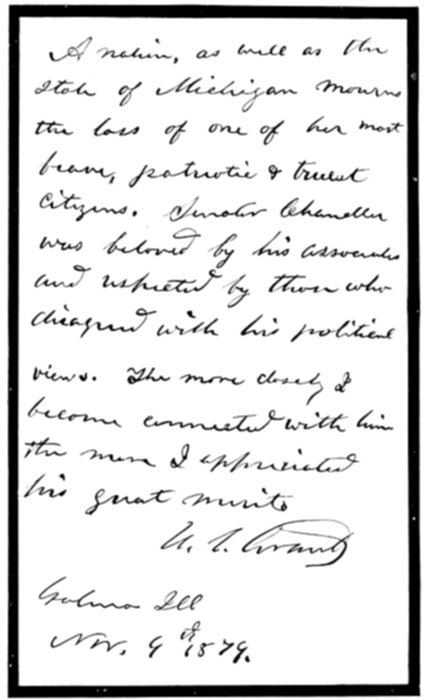 A nation, as well as the
State of Michigan mourns
the loss of one of her most
brave, patriotic & truest
citizens. Senator Chandler
was beloved by his associates
and respected by those who
disagreed with his political
views. The more closely I
became connected with him
the more I appreciated
his great merits
U. S. Grant
Galena Ill
Nov. 9th 1879.